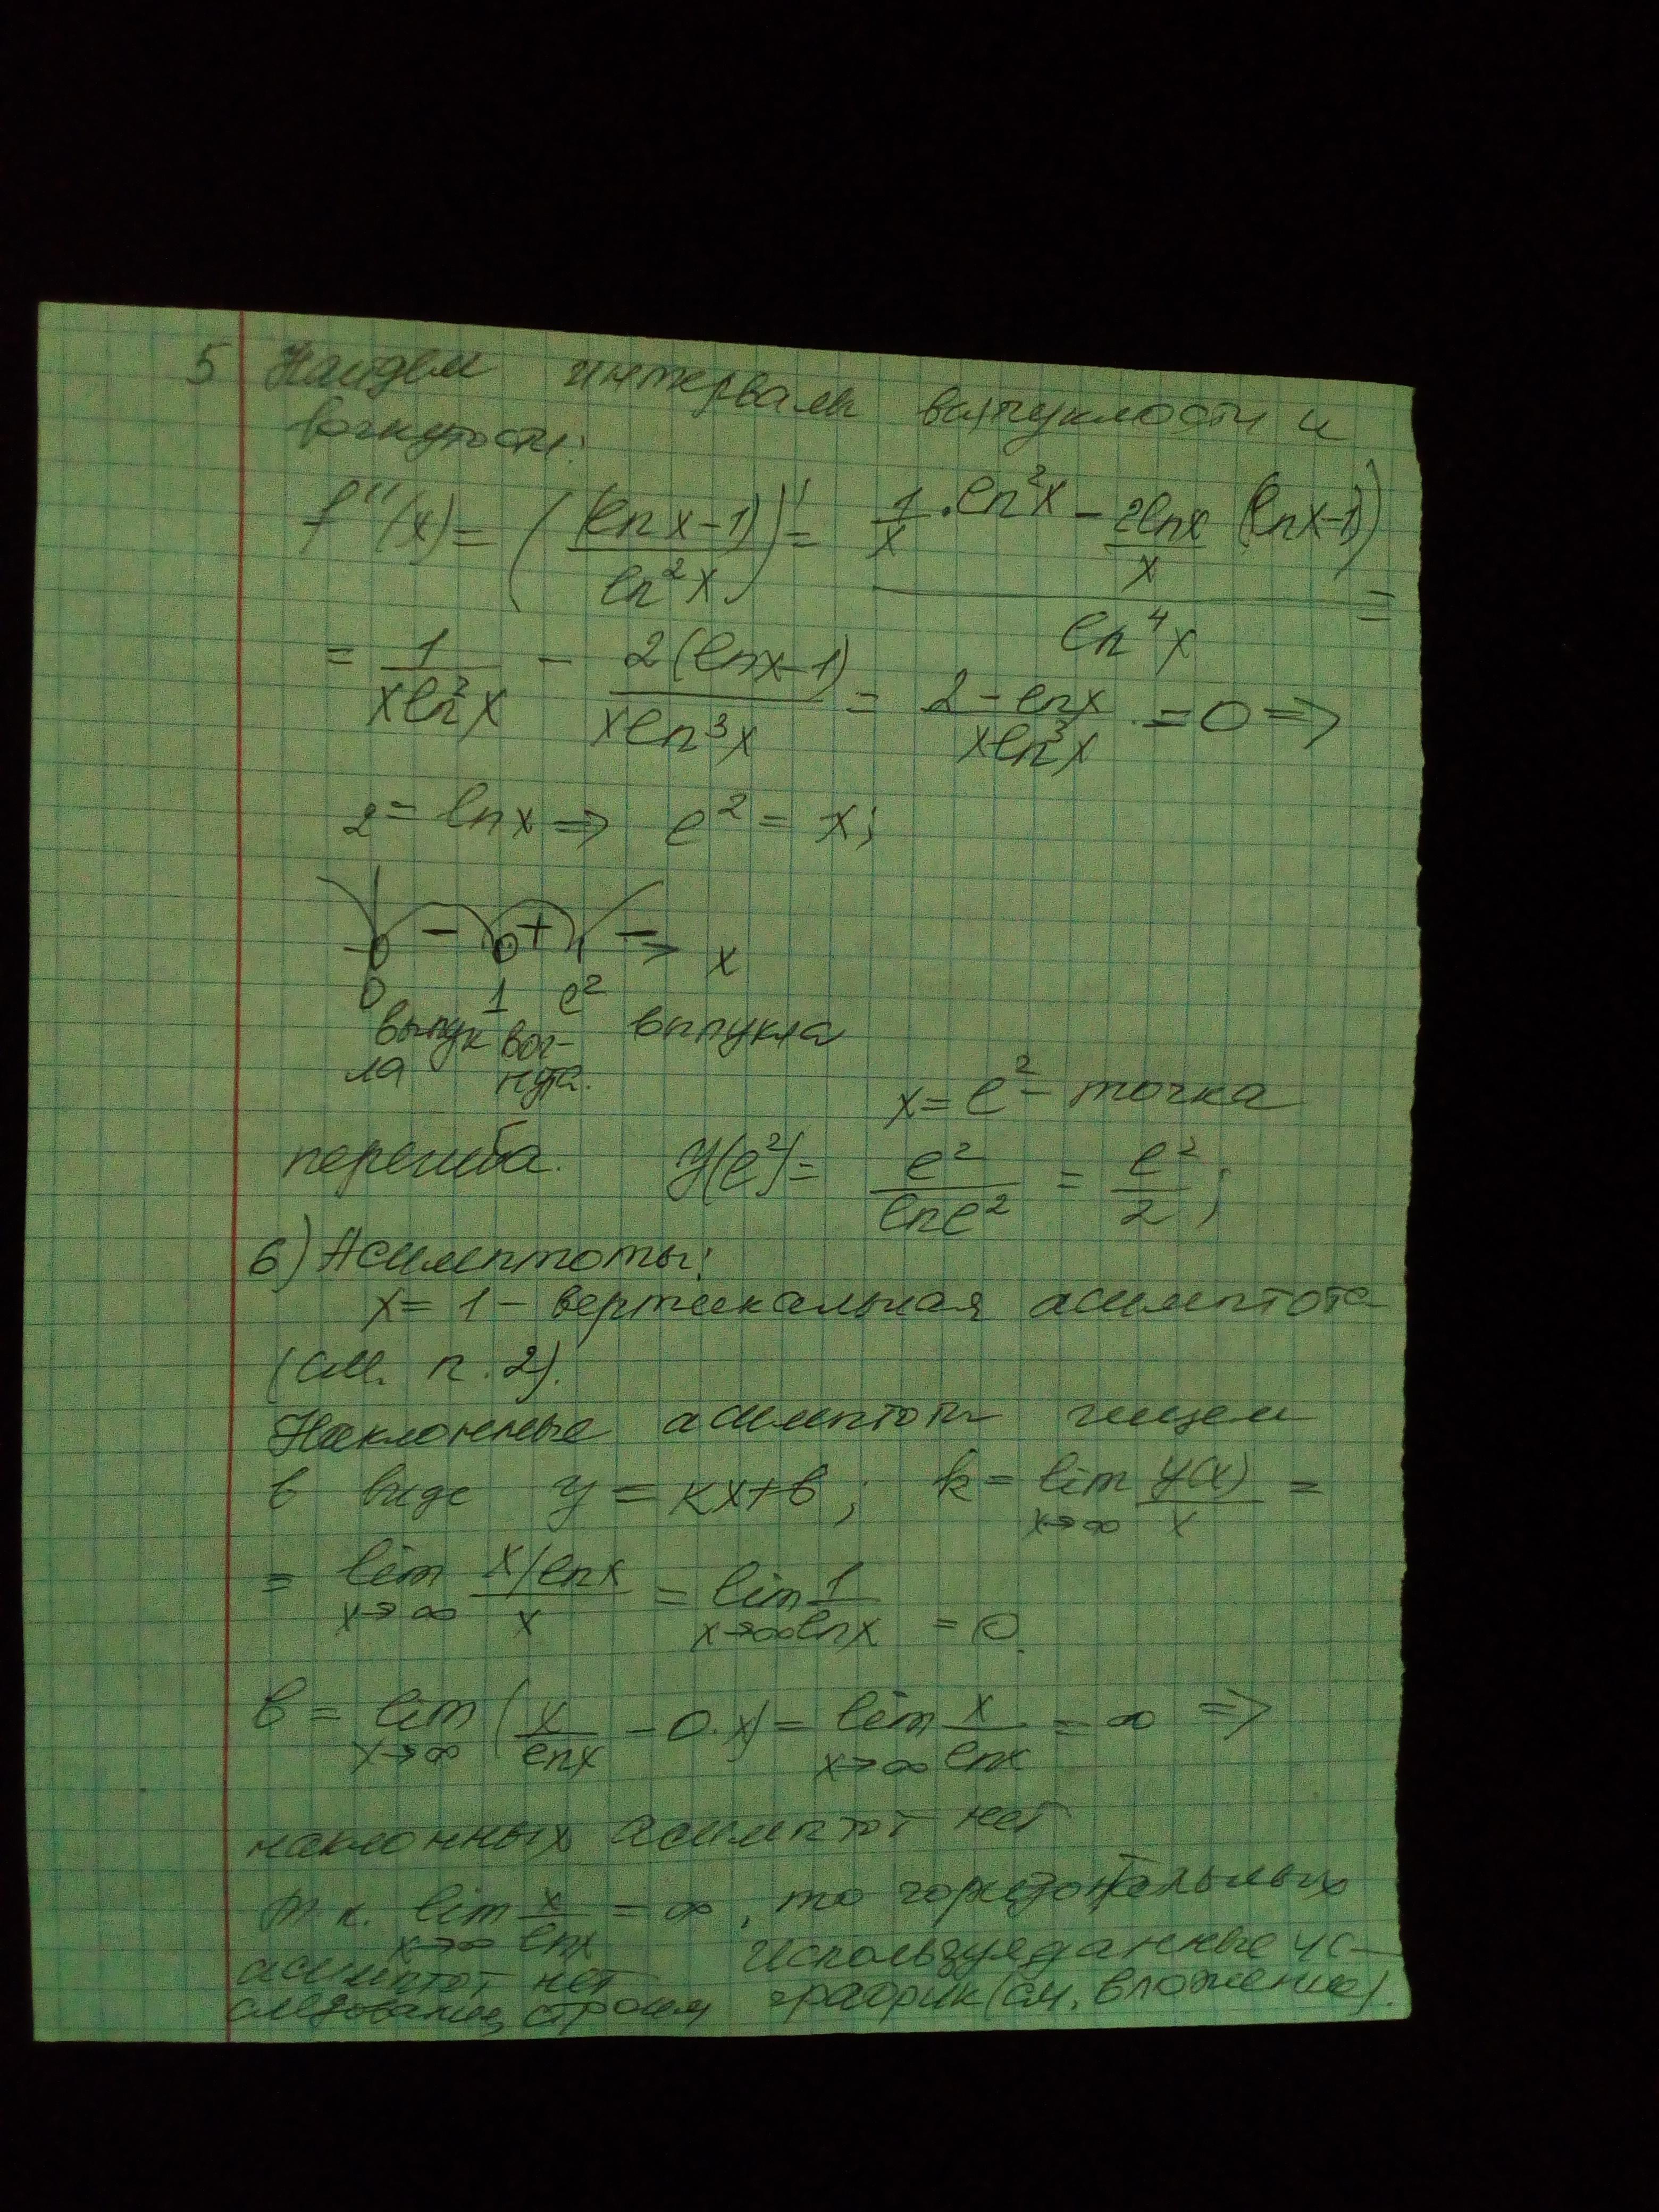 5 Найдем интервалы выпуклости и
вогнутости:
f''(x) = ((ln x - 1)/ln²x)' = (1/x · ln²x - 2lnx/x (lnx-1))/ln⁴x =
= 1/(x ln²x) - 2(lnx-1)/(x ln³x) = (2 - lnx)/(x ln³x) = 0 =>
2 = ln x => e² = x;
- + - x
0 1 e²
выпук вог- выпукла
ла нута.
x = e² - точка
перегиба. y(e²) = e²/ln e² = e²/2;
6) Асимптоты:
x = 1 - вертикальная асимптота
(см. п. 2).
Наклонные асимптоты ищем
в виде y = kx+b; k = lim x→∞ y(x)/x =
= lim x→∞ (x/lnx)/x = lim x→∞ 1/lnx = 0
b = lim x→∞ (x/lnx - 0·x) = lim x→∞ x/lnx = ∞ =>
наклонных асимптот нет
т.к. lim x→∞ x/lnx = ∞, то горизонтальных
асимптот нет Используя данные ис-
следования, строим график (см. вложение).